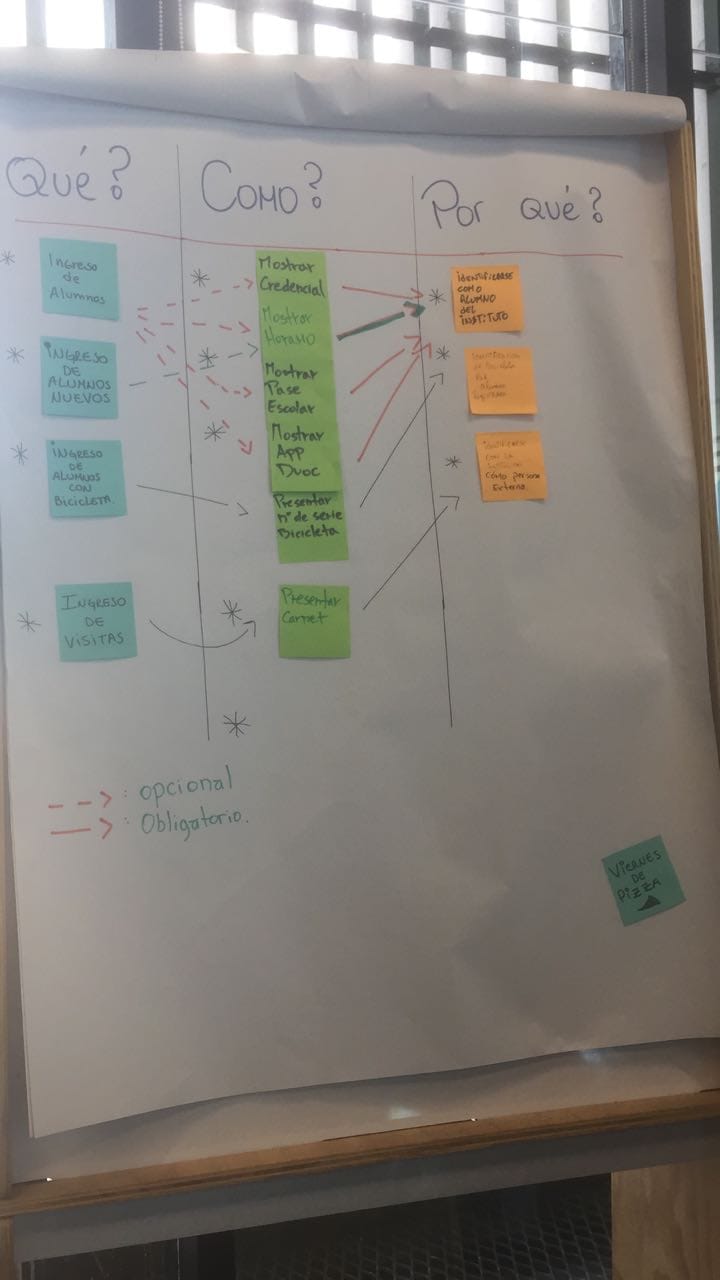 Qué?
Como?
Por qué?
Ingreso
de
Alumnos
INGRESO
DE
ALUMNOS
NUEVOS
INGRESO
DE
ALUMNOS
CON
Bicicleta.
INGRESO
DE
VISITAS
Mostrar
Credencial
Mostrar
Horario
Mostrar
Pase
Escolar
Mostrar
App
Duoc
Presentar
n° de serie
Bicicleta
Presentar
Carnet
IDENTIFICARSE
COMO
ALUMNO
DEL
INSTITUTO
Identificarse
con la
Cómo persona
Externa.
: opcional
: Obligatorio.
VIERNES
DE
PIZZA